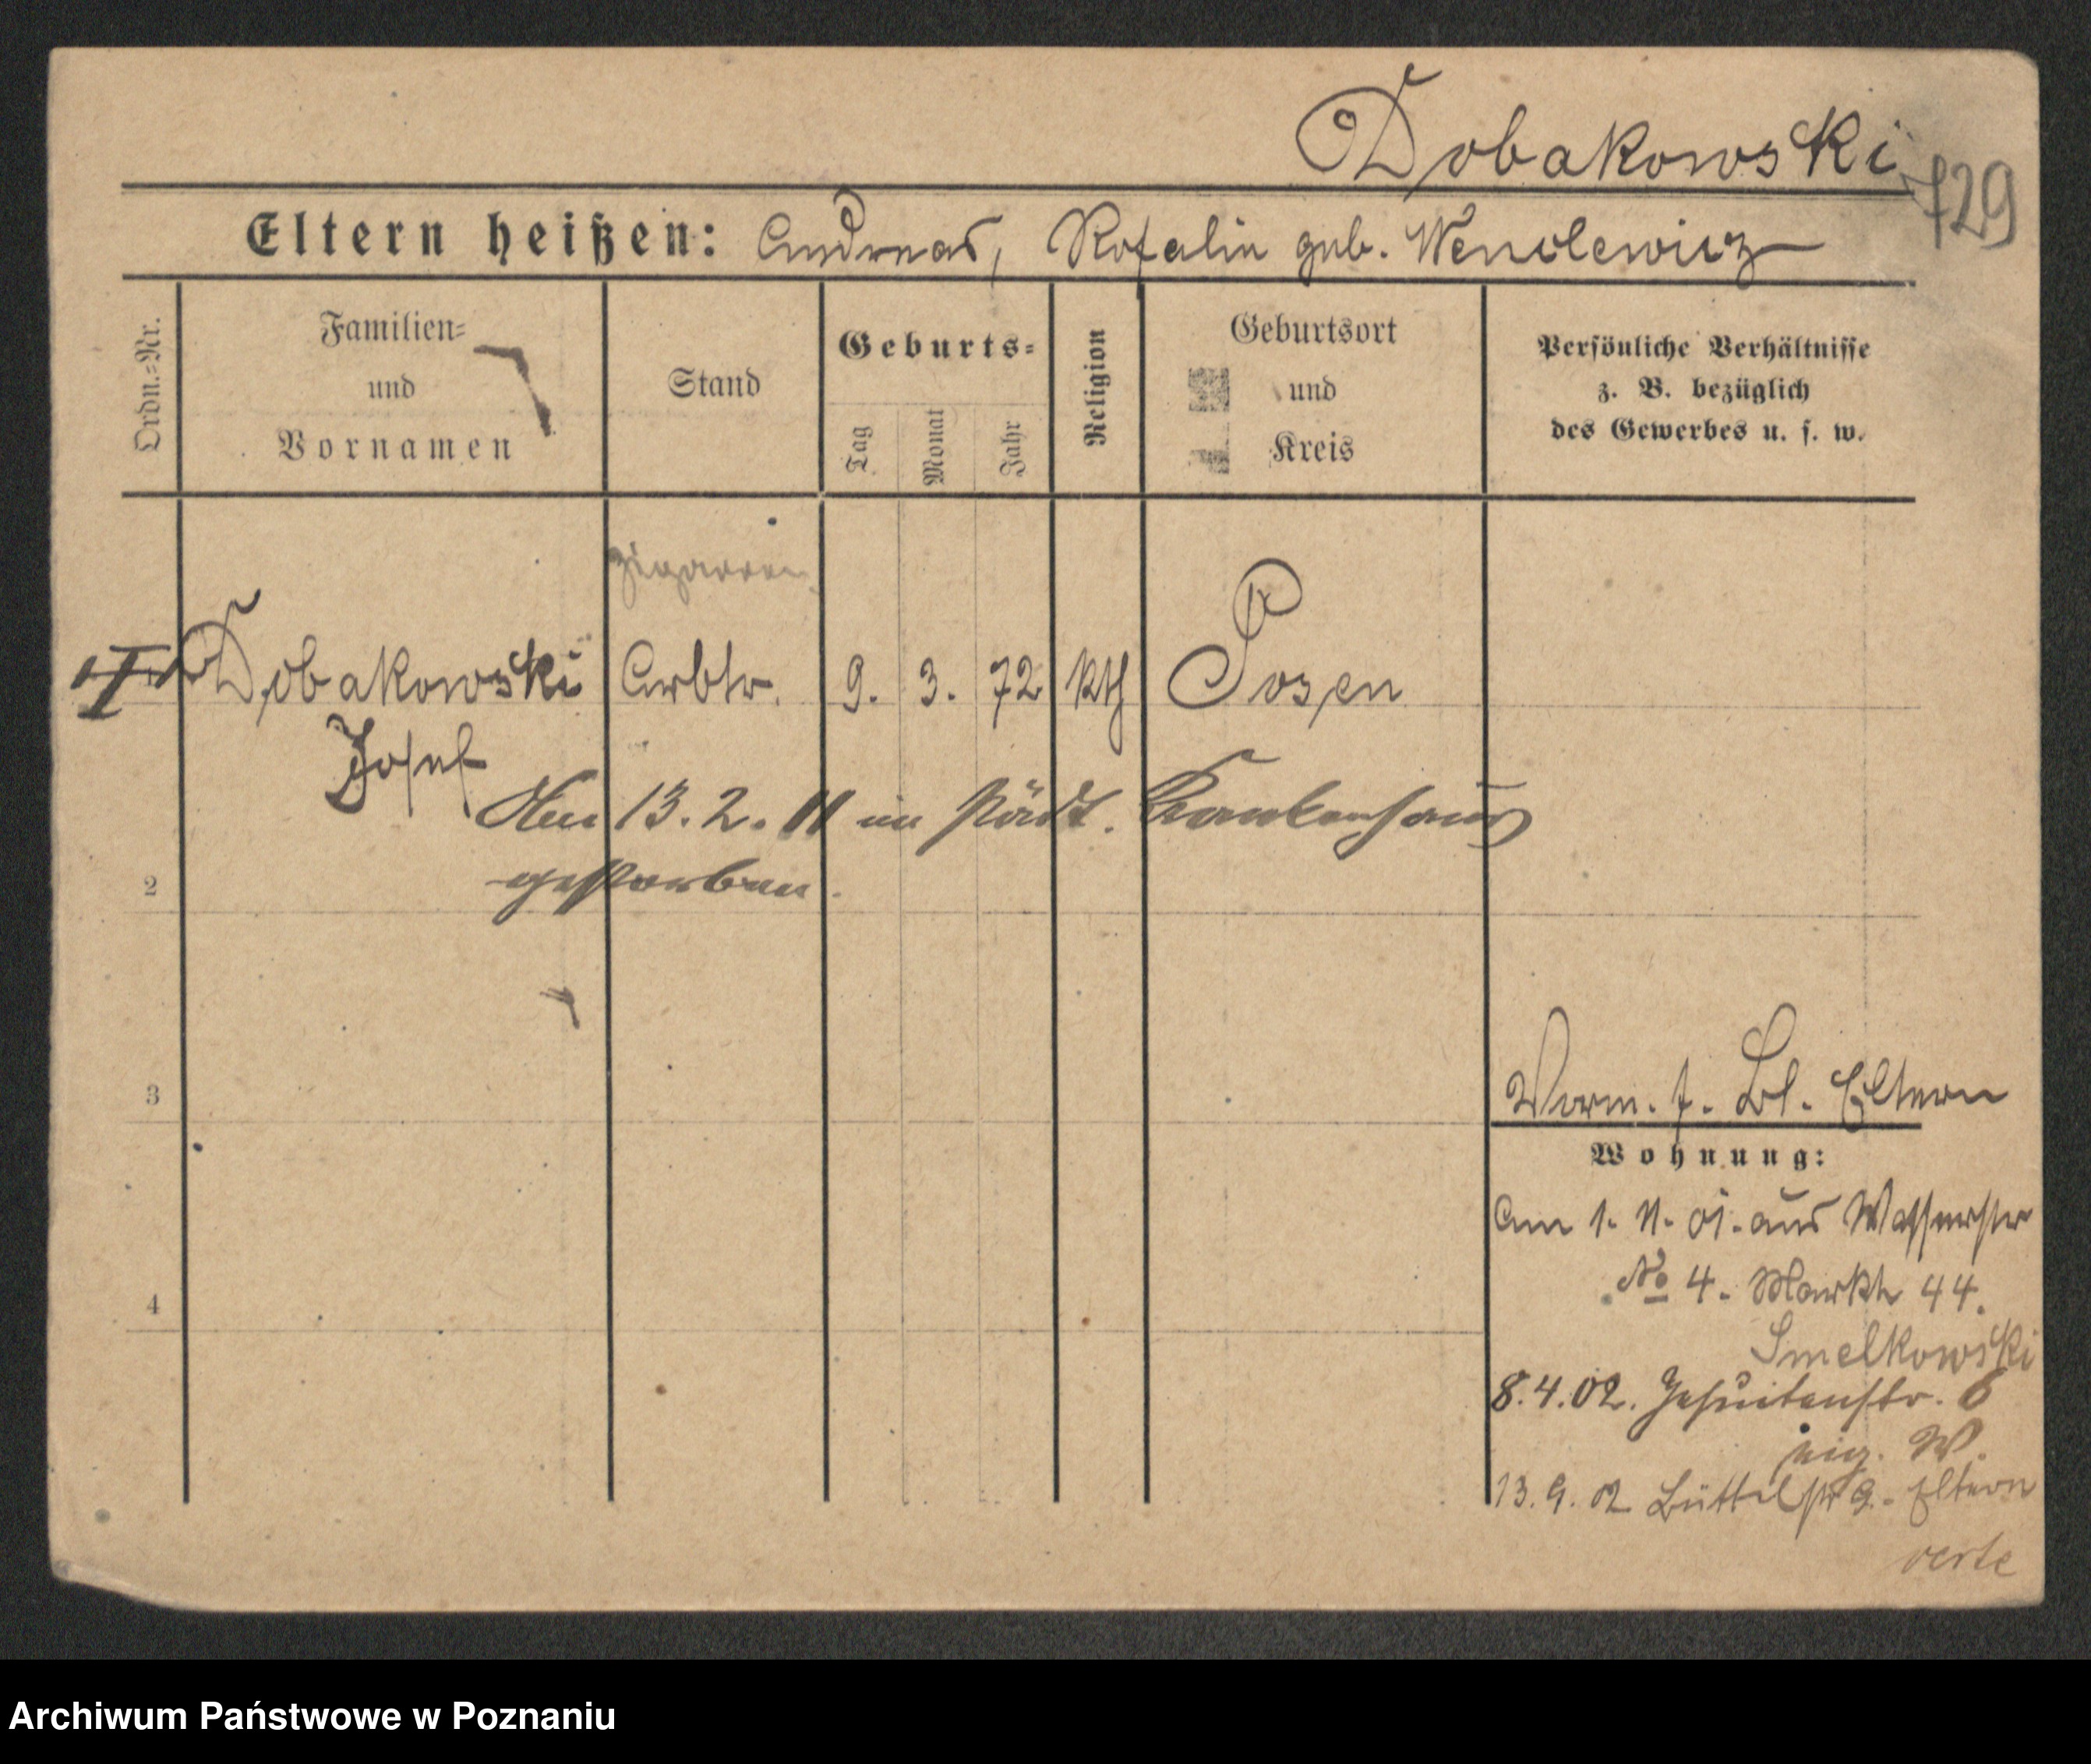 Dobakowski
729
Eltern heißen: Andreas, Rosalie geb. Wenclewicz
Ordn.-Nr.
Familien-
und
Vornamen
Stand
Geburts-
Tag
Monat
Jahr
Religion
Geburtsort
und
Kreis
Persönliche Verhältnisse
z. B. bezüglich
des Gewerbes u. s. w.
Zigarren
Dobakowski Arbtr. 9. 3. 72 kth Posen
Josef
Am 13. 2. 11 im städt. Krankenhaus
2 gestorben.
3
Verm. f. Bl. Eltern
Wohnung:
Am 1. 11. 01. aus Wasserstr
№ 4. Markt 44.
4
Smelkowski
8.4.02. Jesuitenstr. 6
eig. W.
13. 9. 02 Büttelstr 9. Eltern
verte
Archiwum Państwowe w Poznaniu